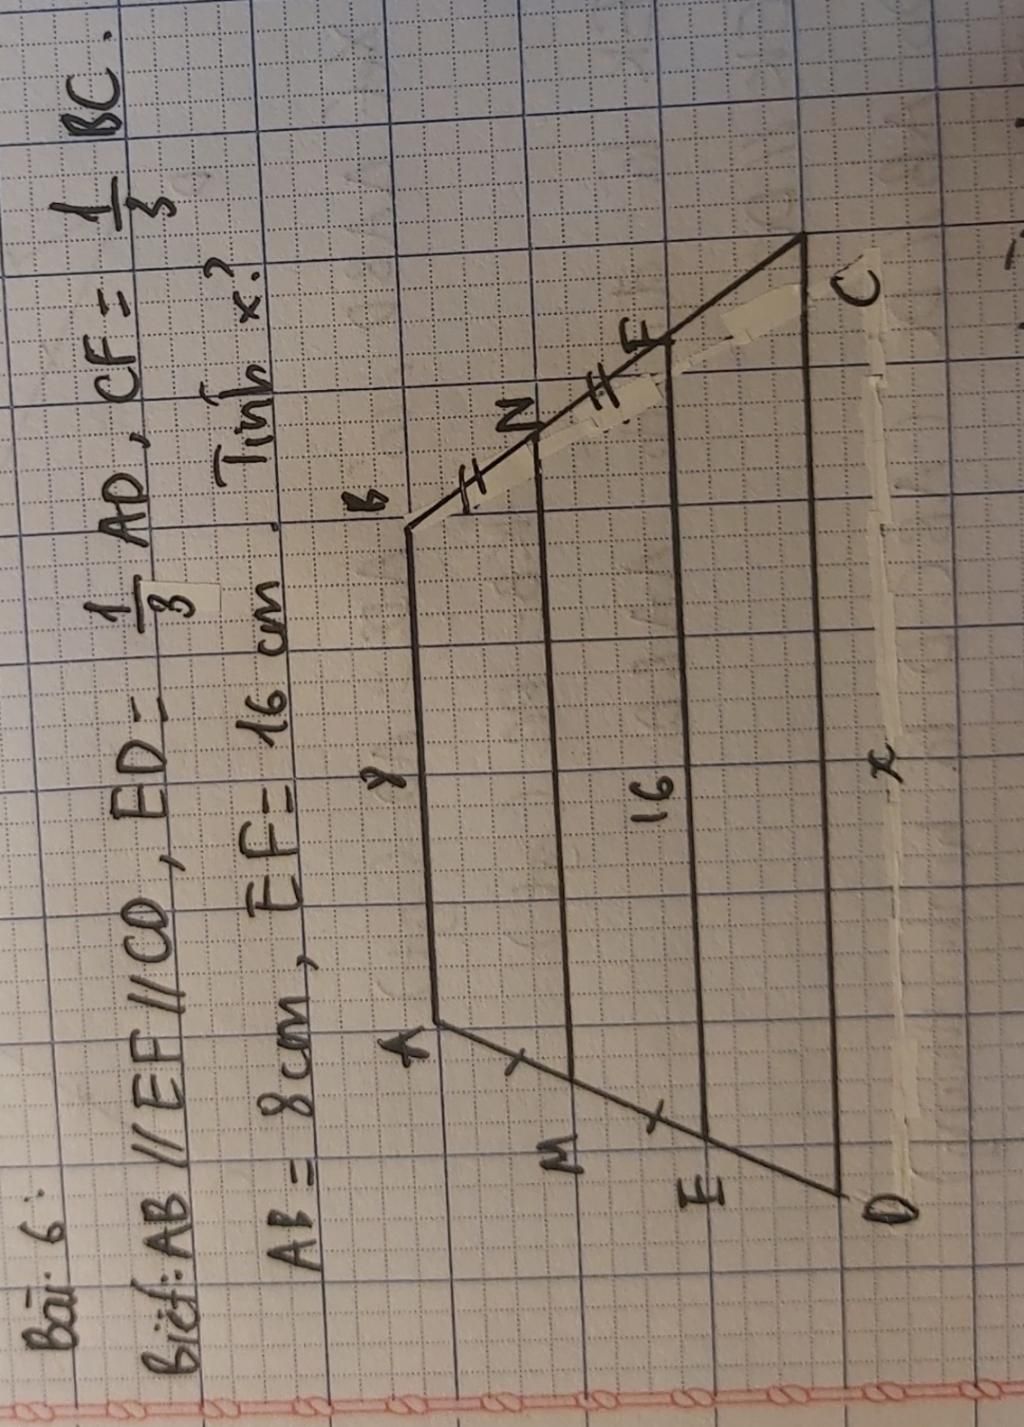 Bài 6:
Biết: AB // EF // CD, ED = 1/3 AD, CF = 1/3 BC.
AB = 8 cm, EF = 16 cm. Tính x?
A 8 B
M N
E 16 F
D x C